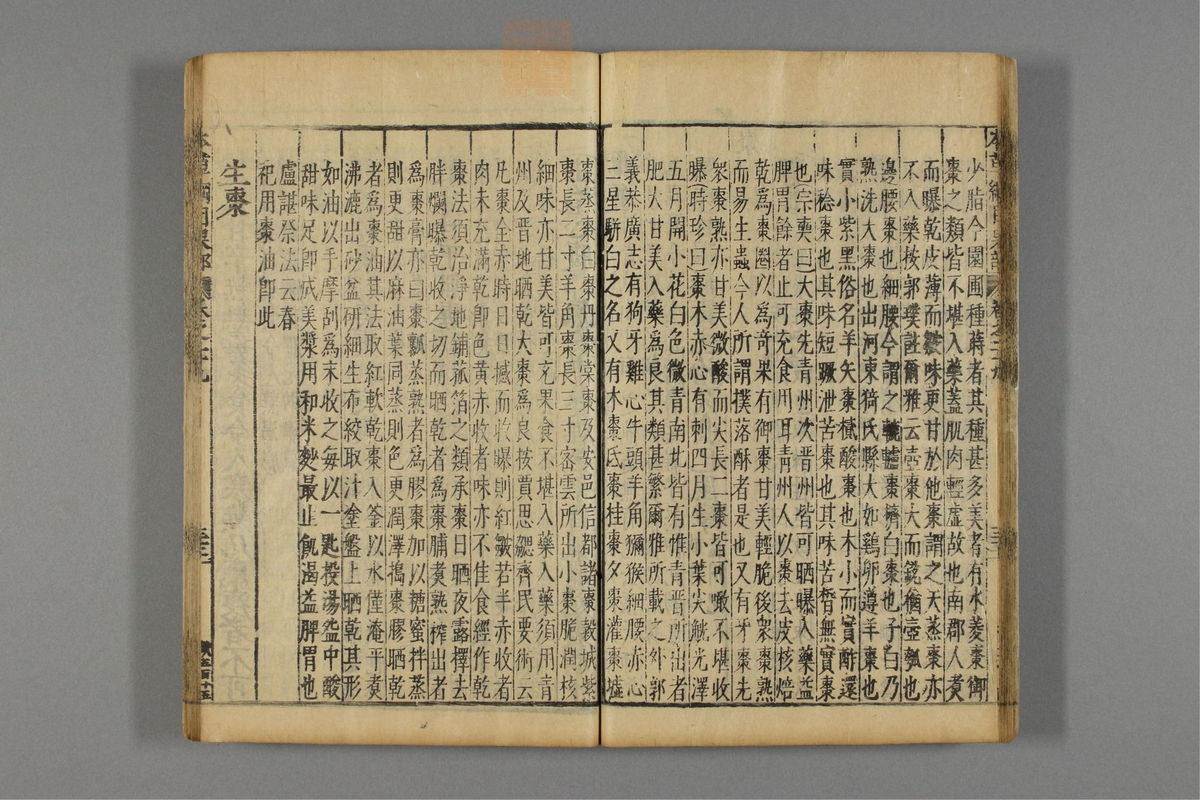 少脂今園圃種蒔者其種甚多美者有水菱棗御
棗之類皆不堪入藥蓋肌肉輕虛故也南郡人煑
而曝乾皮薄而皺味更甘於他棗謂之天蒸棗亦
不入藥按郭璞註爾雅云壺棗大而銳猶壺瓠也
邊腰棗也細腰今謂之轆轤棗櫅白棗也子白乃
熟洗大棗也出河東猗氏縣大如鷄卵遵羊棗也
實小紫黑俗名羊矢棗樲酸棗也木小而實酢還
味稔棗也其味短蹶泄苦棗也其味苦晳無實棗
也宗奭曰大棗先青州次晋州皆可曝入藥益
脾胃餘者止可充食用耳青州人以棗去皮核焙
乾爲棗圈以爲奇果有御棗甘美輕脆後衆棗熟
而易生蟲今人所謂撲落酥者是也又有牙棗先
衆棗熟亦甘美微酸而尖長二棗皆可噉不堪收
曝時珍曰棗木赤心有刺四月生小葉尖觥光澤
五月開小花白色微青南北皆有惟青晋所出者
肥大甘美入藥爲良其類甚繁爾雅所載之外郭
義恭廣志有狗牙雞心牛頭羊角獼猴細腰赤心
三星駢白之名又有木棗氐棗桂棗夕棗灌棗墟
棗蒸棗白棗丹棗棠棗及安邑信都諸棗穀城紫
棗長二寸羊角棗長三寸密雲所出小棗脆潤核
細味亦甘美皆可充果食不堪入藥入藥須用青
州及晋地晒乾大棗爲良按賈思勰齊民要術云
凡棗全赤時日日撼而收曝則紅皺若半赤收者
肉未充滿乾卽色黃赤收者味亦不佳食經作乾
棗法須治淨地鋪菰箔之類承棗日晒夜露擇去
胖爛曝乾收之切而晒乾者爲棗脯煑熟榨出者
爲棗膏亦曰棗瓤蒸熟者爲膠棗加以糖蜜拌蒸
則更甜以麻油葉同蒸則色更潤澤搗棗膠晒乾
者爲棗油其法取紅軟乾棗入釜以水僅淹平煑
沸漉出砂盆研細生布絞取汁塗盤上晒乾其形
如油以手摩刮爲末收之每以一匙投湯盌中酸
甜味足卽成美漿用和米麨最止飢渴益脾胃也
盧諶祭法云春
祀用棗油卽此
生棗